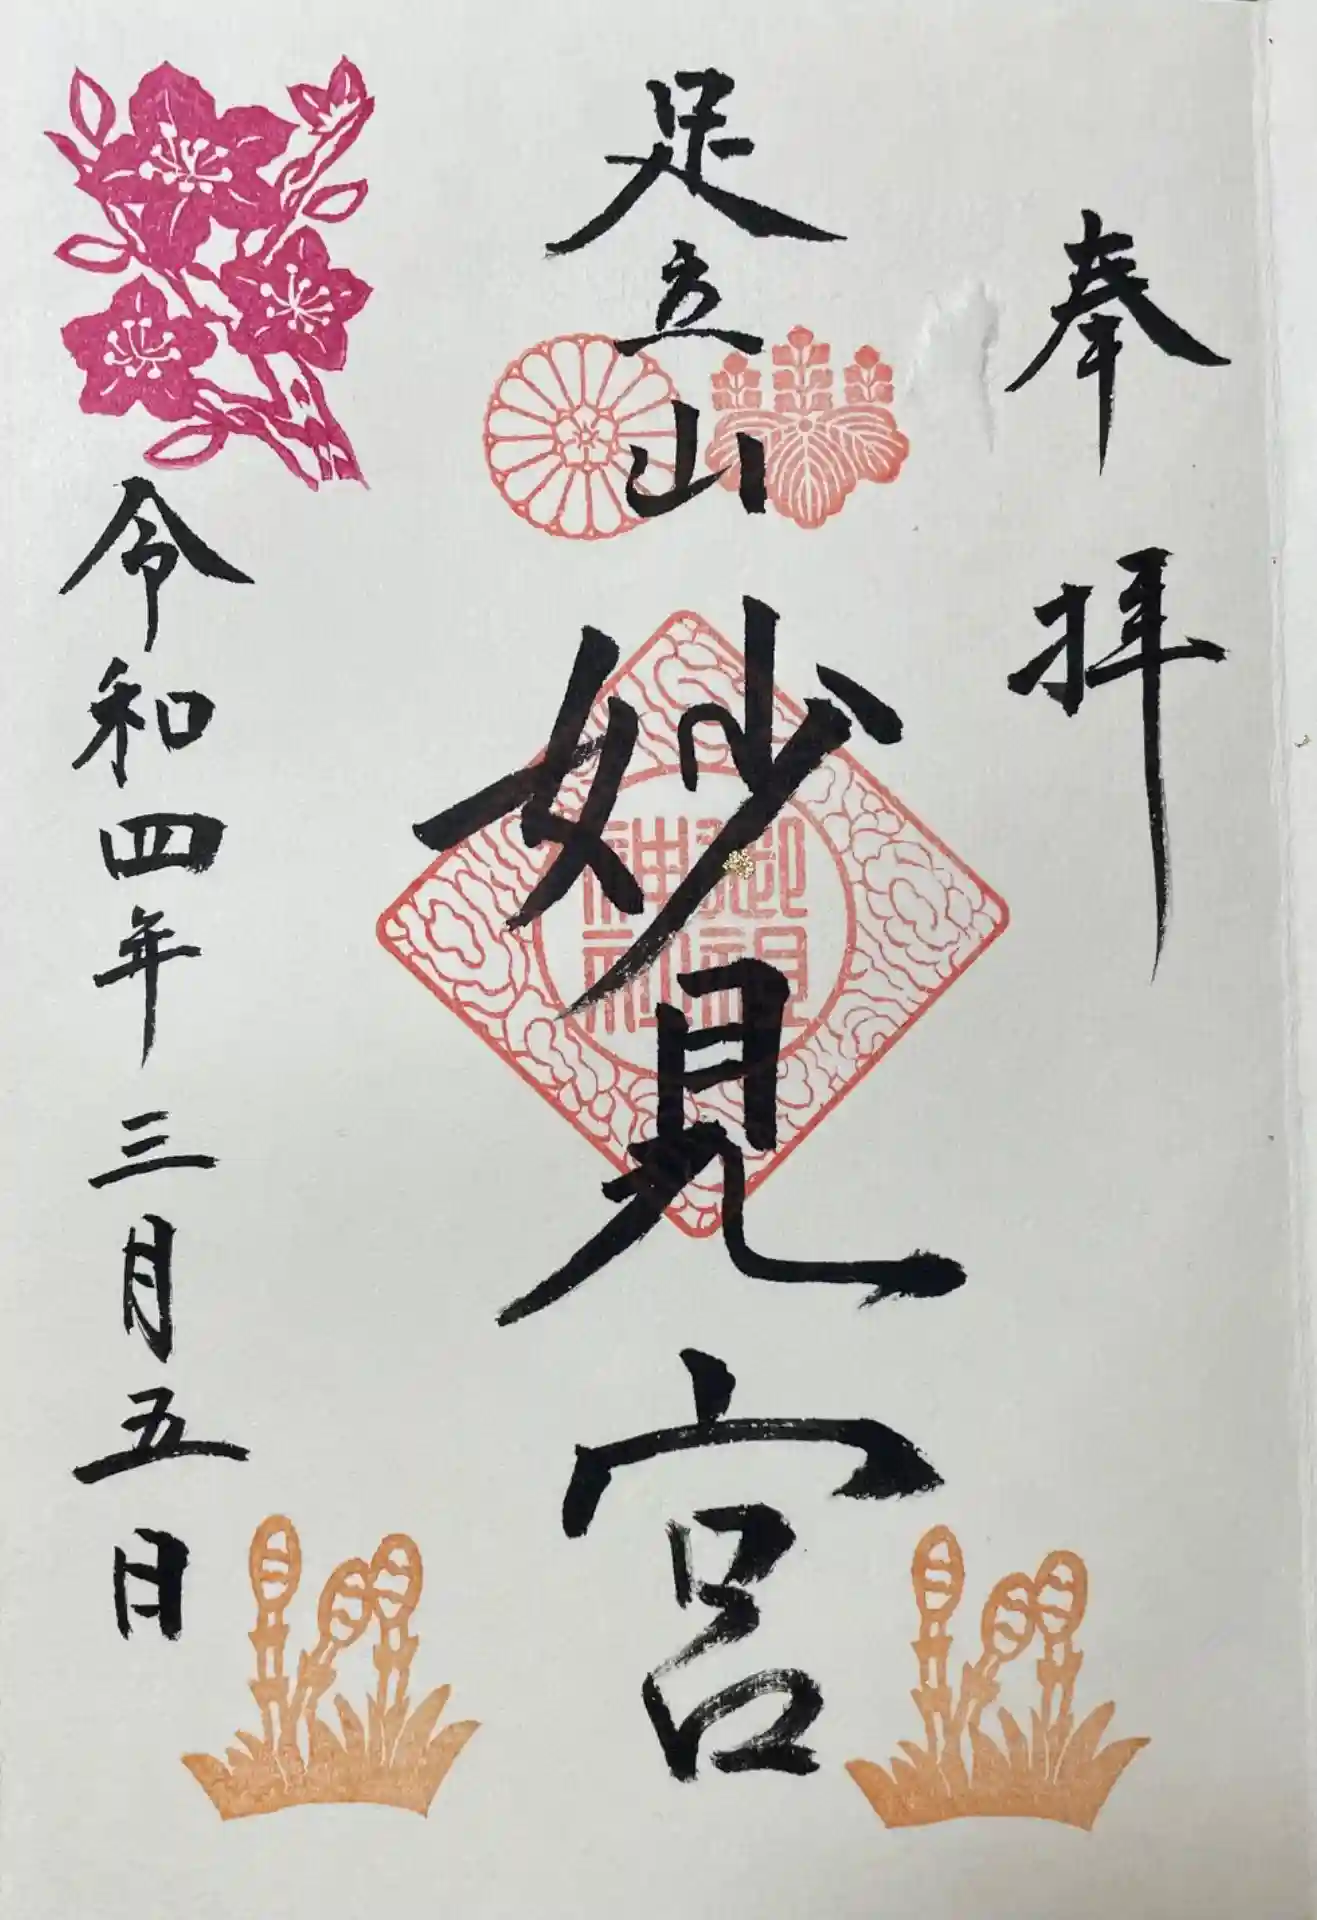 奉拝
足立山
妙見宮
御祖神社
令和四年三月五日